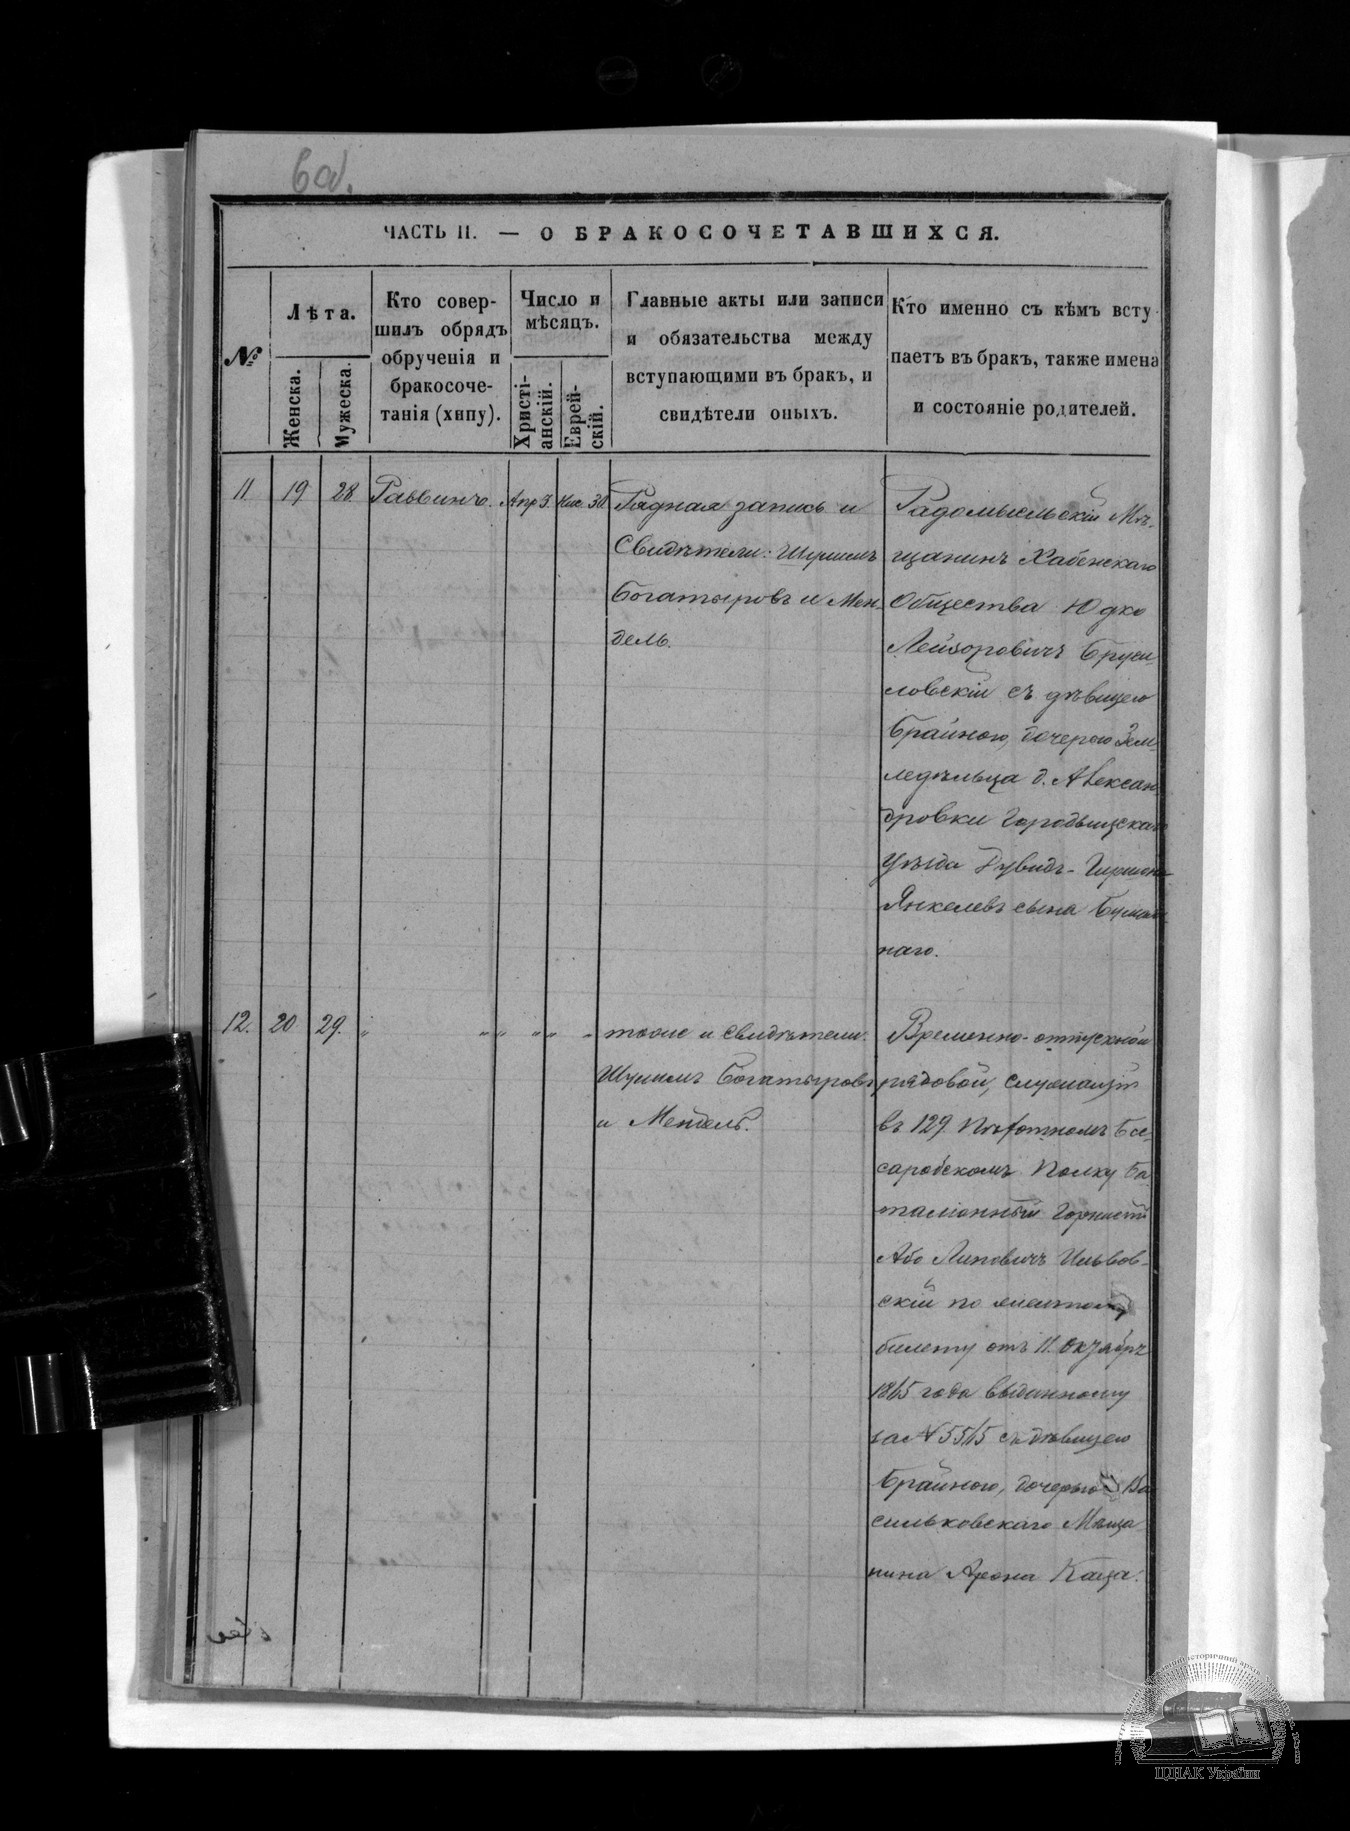 боб.
ЧАСТЬ II. — О БРАКОСОЧЕТАВШИХСЯ.
№
Лѣта.
Женска.
Мужеска.
Кто совер-
шилъ обрядъ
обрученія и
бракосоче-
танія (хипу).
Число и
мѣсяцъ.
Христі-
анскій.
Еврей-
скій.
Главные акты или записи
и обязательства между
вступающими въ бракъ, и
свидѣтели оныхъ.
Кто именно съ кѣмъ всту
паетъ въ бракъ, также имена
и состояніе родителей.
11 19 28 Раввинъ. Апр 3. Нис. 30
Рядная запись и
Свидѣтели: Шулимъ
Богатыровъ и Мен-
дель.
Радомысльскій Мѣ-
щанинъ Хабенскаго
Общества Юдко
Лейзоровичъ Бруси-
ловскій съ дѣвицею
Брайною, дочерою Зем-
ледѣльца д. Алексан
дровки Городыщскаго
Уѣзда Дувидъ-Гершона
Янкелевъ сына
наго.
12. 20 29. „ „ „ „ „ „
такіе и свидѣтели:
Шулимъ Богатыровъ
и Мендель.
Временно-отпускной
рядовой, служащій
въ 129 Пѣхотномъ Бес-
сарабскомъ Полку Ба-
таліонный Горнистъ
Або Липовичъ Ильвов-
скій по
билету отъ 11. октября
1865 года выданному
за № 5565 съ дѣвицею
Брайною, дочерью Ва
сильковскаго Мѣща
нина Арона Каца.
ЦДІАК України